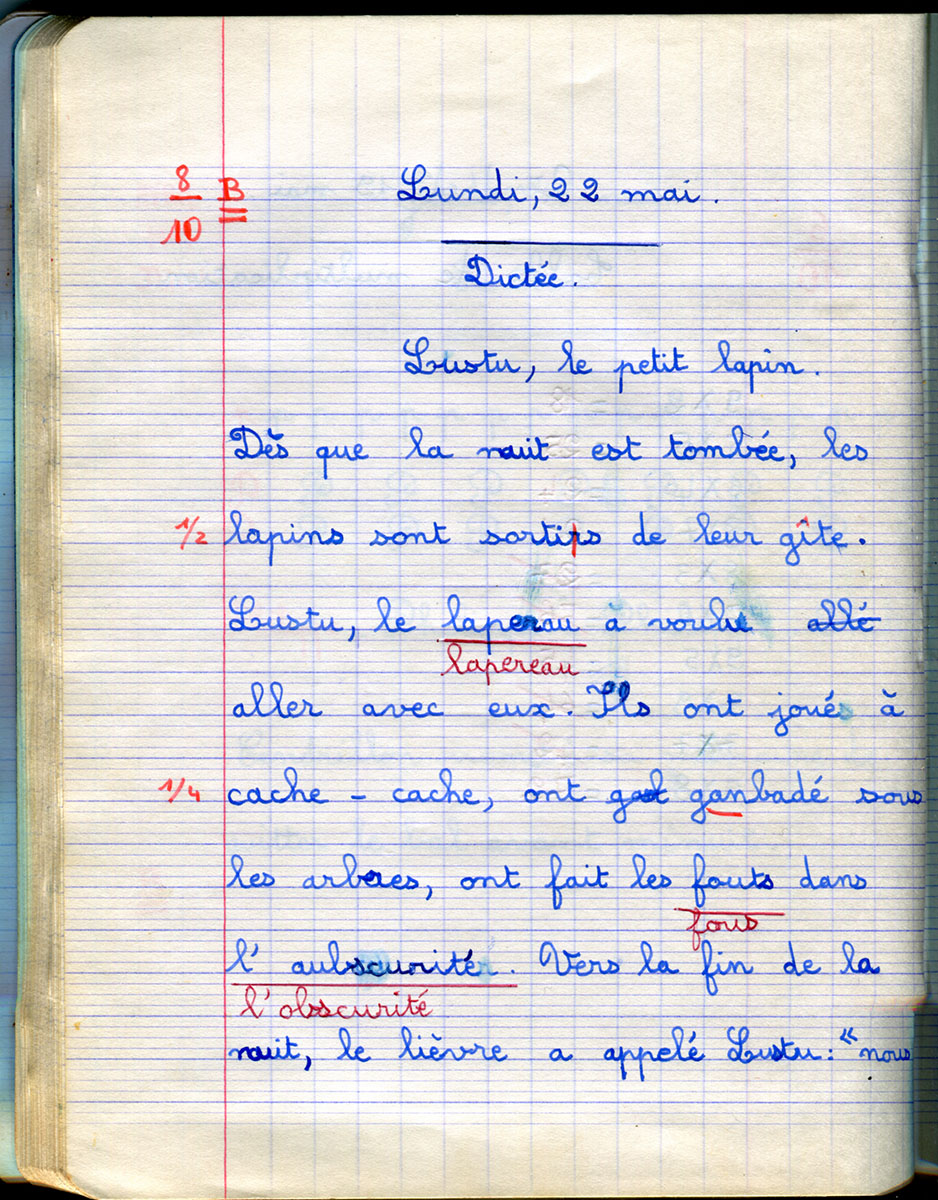 8/10 B Lundi, 22 mai.
Dictée.
Lustu, le petit lapin.
Dès que la nuit est tombée, les
1/2 lapins sont sortis de leur gîte.
Lustu, le laperau à voulu allé
lapereau
aller avec eux. Ils ont joués à
1/4 cache-cache, ont ganbadé sous
les arbres, ont fait les fouts dans
fous
l'aubscurité. Vers la fin de la
l'obscurité
nuit, le lièvre a appelé Lustu : "nous